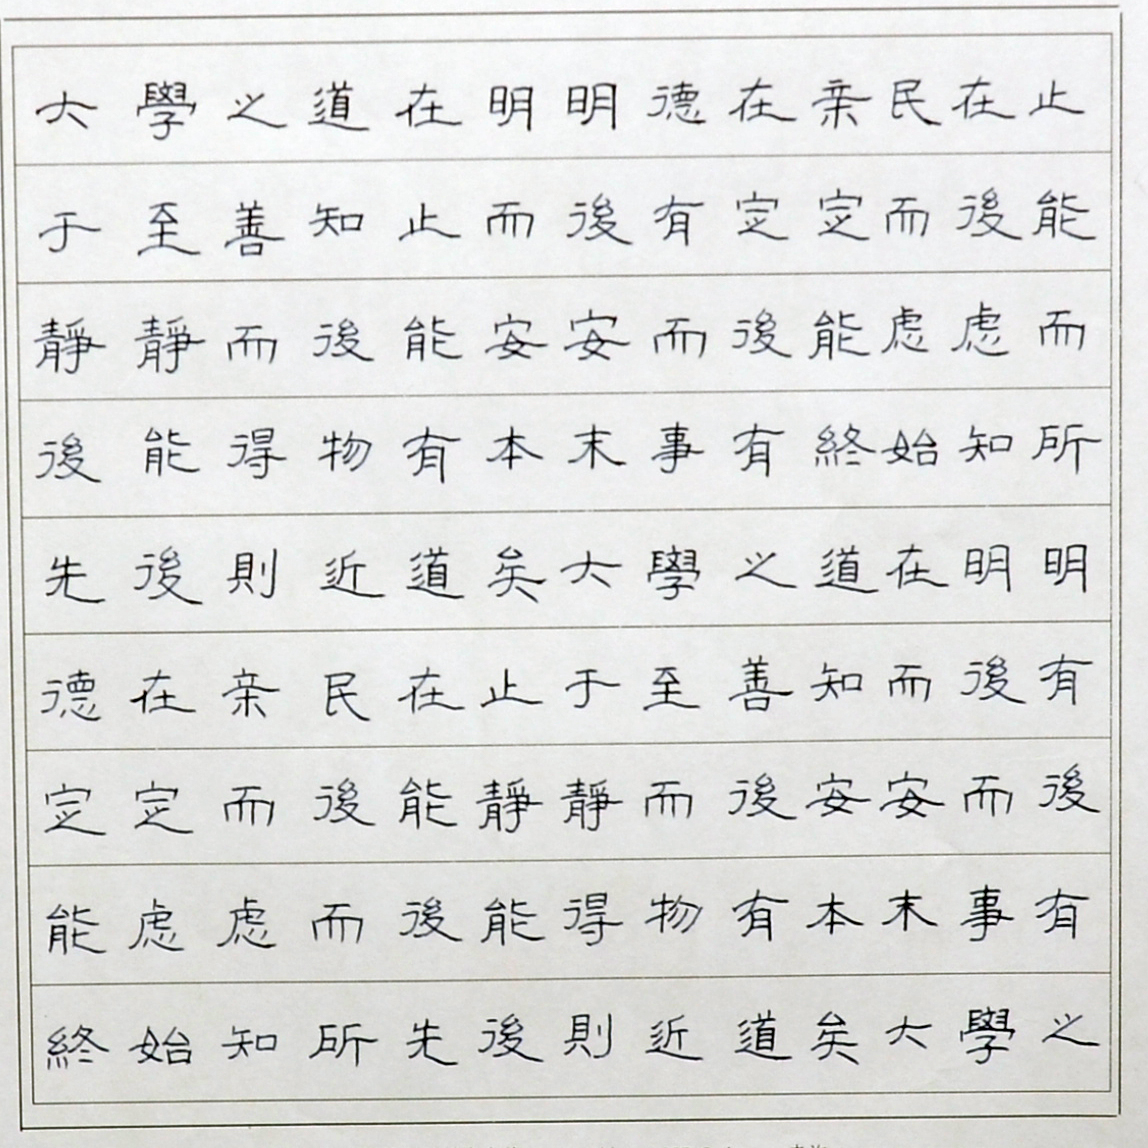 大學之道在明明德在亲民在止
于至善知止而後有定定而後能
靜靜而後能安安而後能虑虑而
後能得物有本末事有終始知所
先後則近道矣大學之道在明明
德在亲民在止于至善知而後有
定定而後能靜靜而後安安而後
能虑虑而後能得物有本末事有
終始知所先後則近道矣大學之